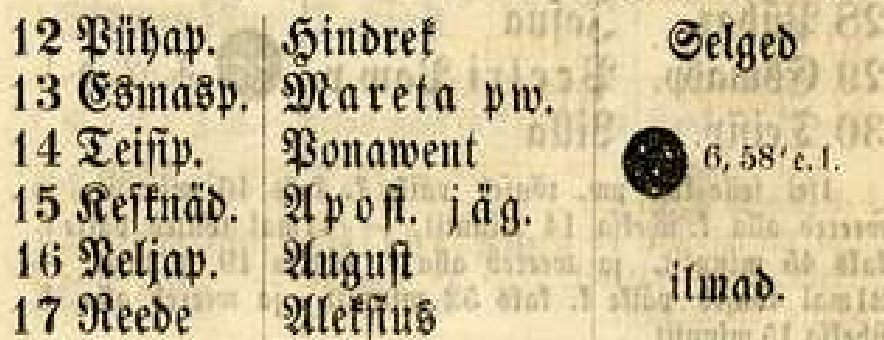 12 Pühap. Hindrek Selged
13 Esmasp. Mareta pw.
14 Teisip. Ponawent 6, 58' e. l.
15 Kesknäd. Apost. jäg.
16 Neljap. August ilmad.
17 Reede Aleksius